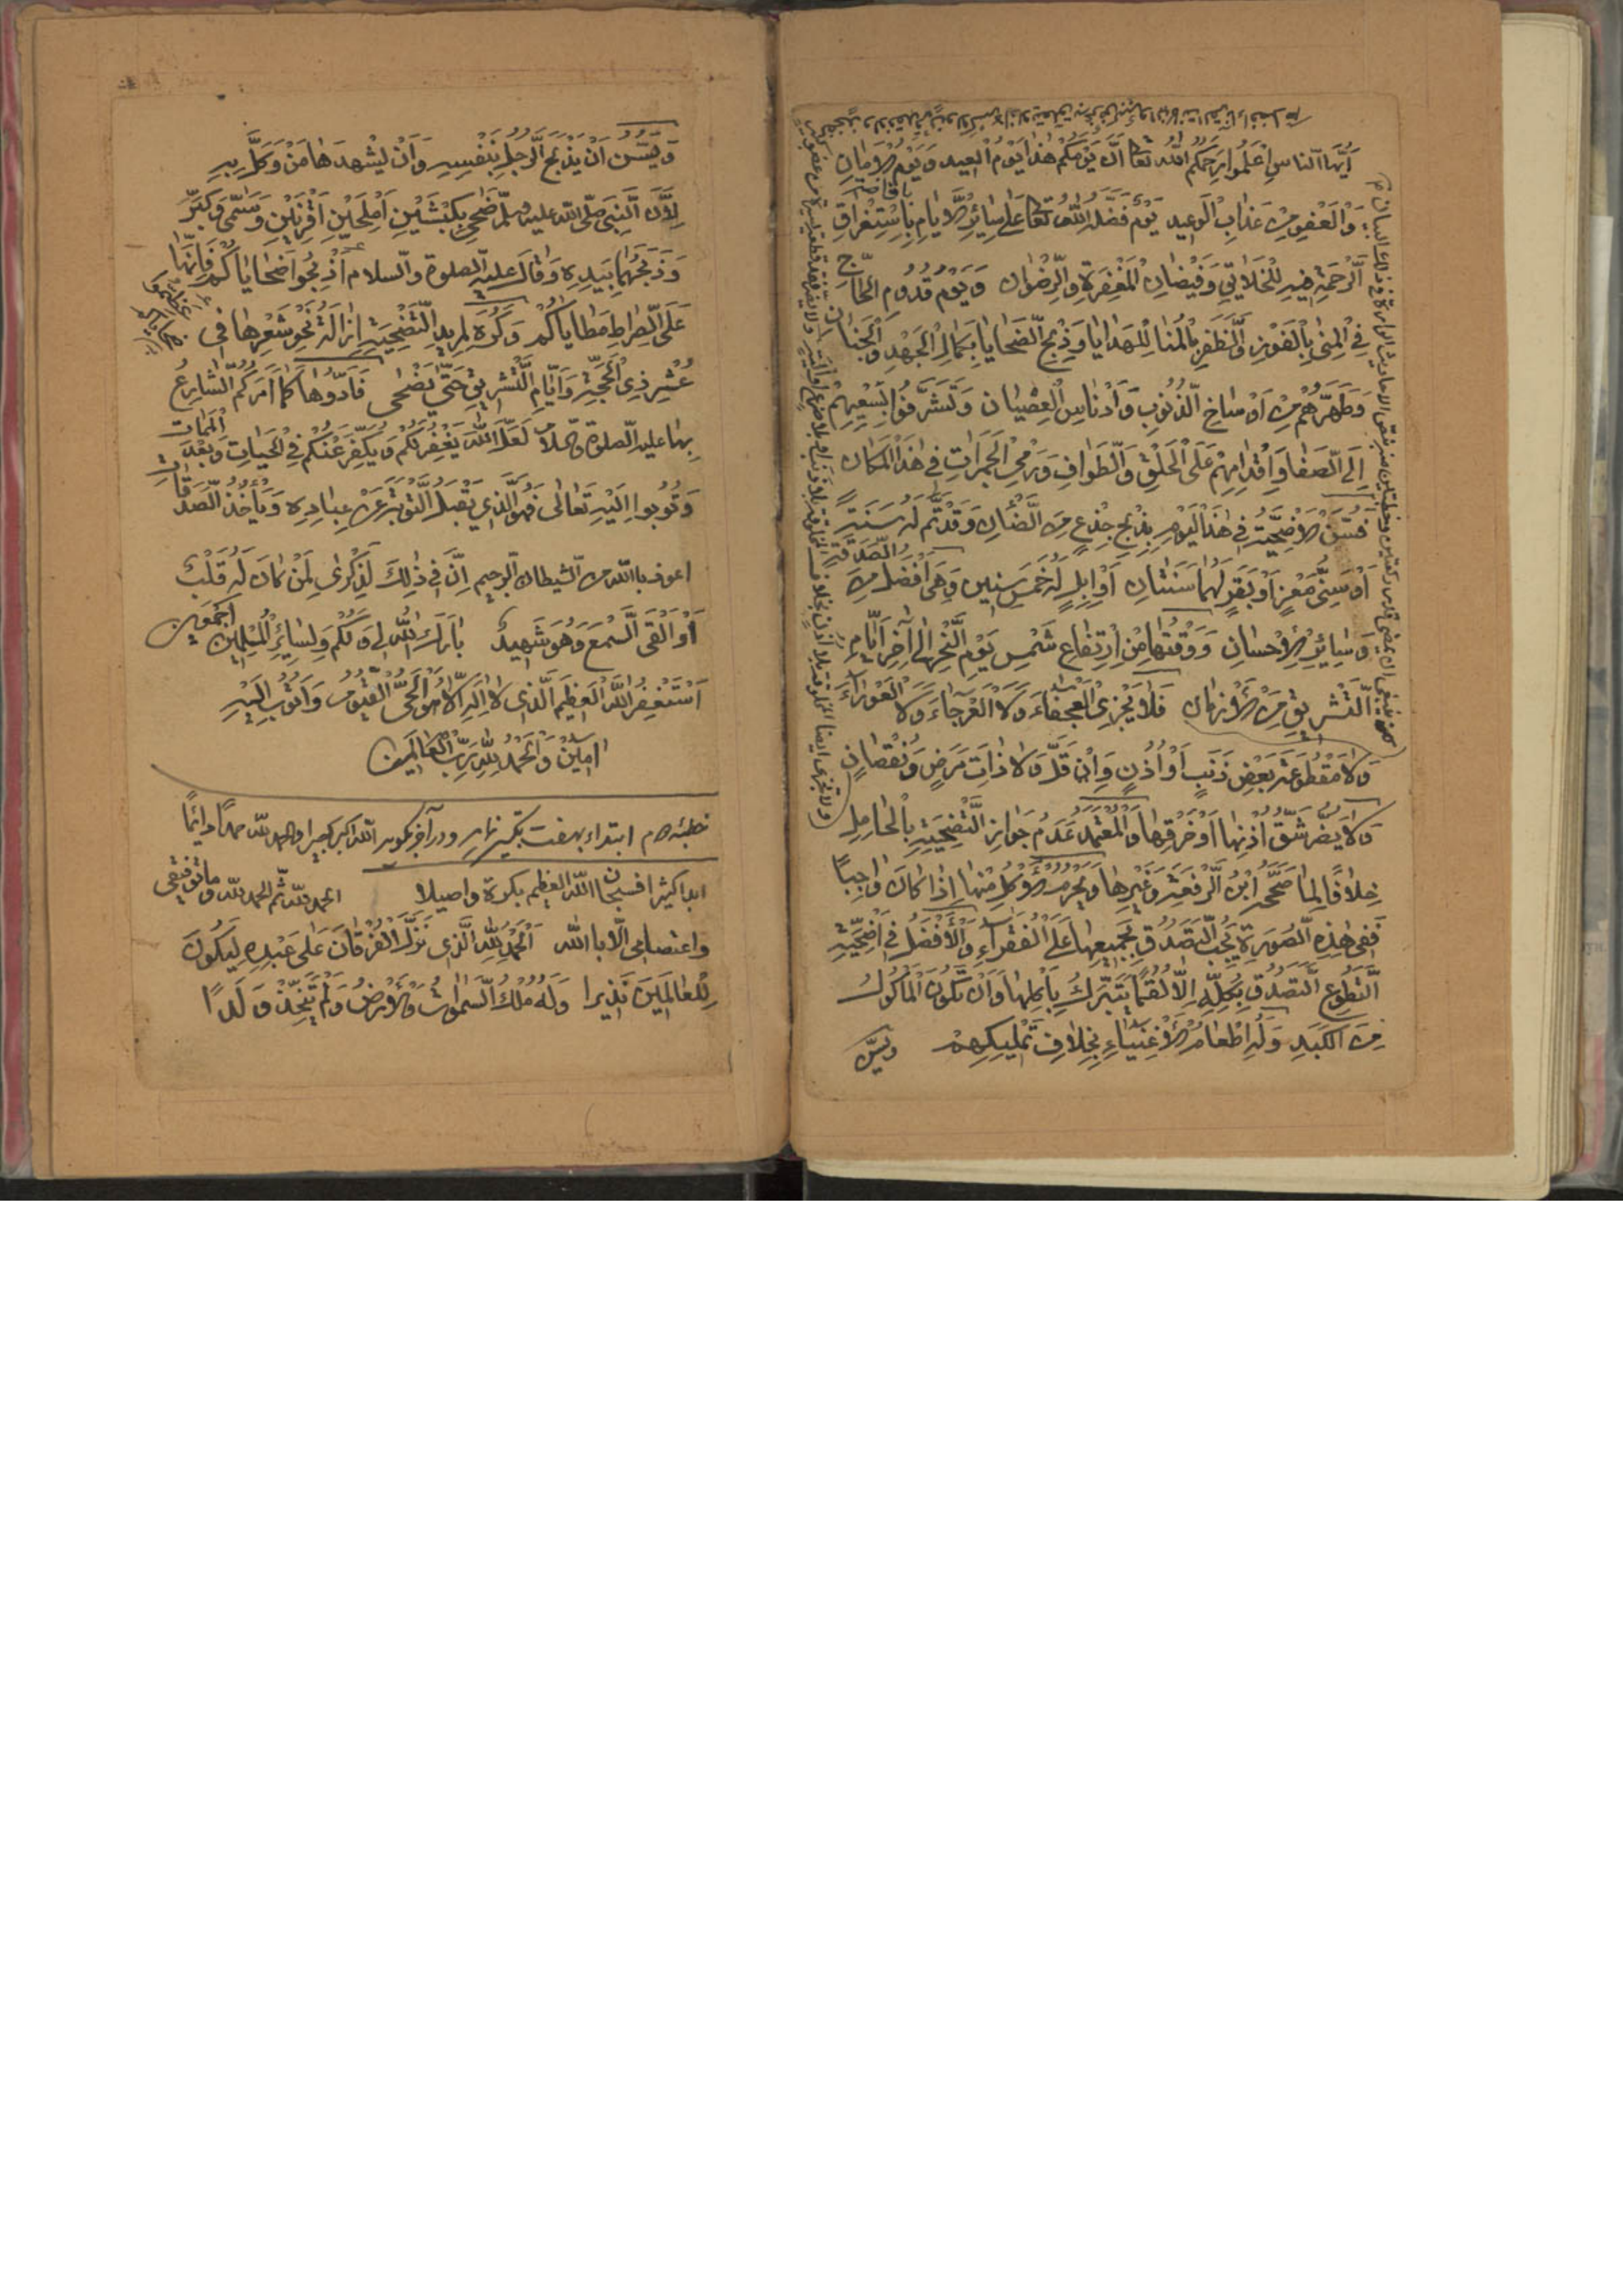 أَيُّهَا النَّاسُ اِعْلَمُوا رَحِمَكُمُ اللّٰهُ تَعَا اَنَّ يَوْمَكُمْ هٰذَا يَوْمُ الْعِيدِ وَيَوْمُ الْاَمَانِ
وَالْعَفْوِ مِنْ عَذَابِ الْوَعِيدِ يَوْمٌ فَضَّلَهُ اللّٰهُ تَعَا عَلٰى سَائِرِ الْاَيَّامِ بِاسْتِغْرَاقِ
الرَّحْمَةِ فِيهِ لِلْخَلَائِقِ وَفَيْضَانِ الْمَغْفِرَةِ وَالرِّضْوَانِ وَيَوْمُ قُدُومِ الْحَاجِّ
فِي الْمِنٰى بِالْفَوْزِ وَالظَّفَرِ بِالْمُنَا لِلْهَدَايَا وَذِبْحِ الضَّحَايَا بِكَمَالِ الْجَهْدِ وَالْجَنَانِ
وَطَهَّرَهُمْ مِنْ اَوْسَاخِ الذُّنُوبِ وَاَدْنَاسِ الْعِصْيَانِ وَتَشَرَّفُوا بِسَعْيِهِمْ
اِلَى الصَّفَا وَاِقْدَامِهِمْ عَلَى الْحَلْقِ وَالطَّوَافِ وَرَمْيِ الْجَمَرَاتِ فِي هٰذَا الْمَكَانِ
فَتُسَنُّ الْاُضْحِيَّةُ فِي هٰذَا الْيَوْمِ بِذَبْحِ جِذْعٍ مِنَ الضَّأْنِ وَقَدْ تَمَّ لَهُ سَنَةٌ
اَوْ سَنِّ مَعْزٍ اَوْ بَقَرٍ لَهُمَا سَنَتَانِ اَوْ اِبِلٍ لَهُ خَمْسُ سِنِينَ وَهِيَ اَفْضَلُ مِنَ الصَّدَقَةِ
وَسَائِرِ الْاِحْسَانِ وَوَقْتُهَا مِنْ اِرْتِفَاعِ شَمْسِ يَوْمِ النَّحْرِ اِلٰى آخِرِ اَيَّامِ
التَّشْرِيقِ مِنَ الْاَزْمَانِ فَلَا يَجْزِى الْعَجْفَاءُ وَلَا الْعَرْجَاءُ وَلَا الْعَوْرَاءُ
وَلَا مَقْطُوعَةُ بَعْضِ ذَنَبٍ اَوْ اُذُنٍ وَاِنْ قَلَّ وَلَا ذَاتُ مَرَضٍ وَنُقْصَانٍ
وَلَا يَضُرُّ شَقُّ اُذُنِهَا اَوْ خَرْقُهَا وَالْمُعْتَمَدُ عَدَمُ جَوَازِ التَّضْحِيَةِ بِالْحَامِلِ
خِلَافًا لِمَا صَحَّحَهُ ابْنُ الرِّفْعَةِ وَغَيْرُهَا وَيَحْرُمُ الْاَكْلُ مِنْهَا اِذَا كَانَ وَاجِبًا
فَفِي هٰذِهِ الصُّورَةِ يَجِبُ التَّصَدُّقُ بِجَمِيعِهَا عَلَى الْفُقَرَاءِ وَالْاَفْضَلُ فِي اُضْحِيَّةِ
التَّطَوُّعِ التَّصَدُّقُ بِكُلِّهِ اِلَّا لُقَمًا يَتَبَرَّكُ بِاَكْلِهَا وَاَنْ تَكُونَ الْمَأْكُولُ
مِنَ الْكَبِدِ وَلَهُ اِطْعَامُ الْاَغْنِيَاءِ بِخِلَافِ تَمْلِيكِهِمْ ويسن
وَيُسَنُّ اَنْ يَذْبَحَ الرَّجُلُ بِنَفْسِهِ وَاَنْ يَشْهَدَهَا مَنْ وَكَّلَ بِهِ
لِاَنَّ النَّبِيَّ صلّى اللّٰه عليه وسلّم ضَحّٰى بِكَبْشَيْنِ اَمْلَحَيْنِ اَقْرَنَيْنِ وَسَمّٰى وَكَبَّرَ
وَذَبَحَهُمَا بِيَدِهِ وَقَالَ عليه الصلوة والسلام اَذْبِحُوا ضَحَايَاكُمْ فَاِنَّهَا
عَلَى الصِّرَاطِ مَطَايَاكُمْ وَكُرِهَ لِمُرِيدِ التَّضْحِيَةِ اِزَالَةُ نَحْوِ شَعْرِهَا فِي
عُشْرِ ذِي الْحِجَّةِ وَاَيَّامِ التَّشْرِيقِ حَتّٰى يُضْحٰى فَاَدُّوهَا كَمَا اَمَرَكُمُ الشَّارِعُ
بِهَا عليه الصلوة والسلام لَعَلَّ اللّٰهَ يَغْفِرُ لَكُمْ وَيُكَفِّرُ عَنْكُمْ فِي الْحَيَاتِ وَبَعْدَ الْمَمَاتِ
وَتُوبُوا اِلَيْهِ تَعَالٰى فَهُوَ الَّذِي يَقْبَلُ التَّوْبَةَ عَنْ عِبَادِهِ وَيَأْخُذُ الصَّدَقَاتِ
اعوذ باللّٰه من الشيطان الرجيم اِنَّ فِي ذٰلِكَ لَذِكْرٰى لِمَنْ كَانَ لَهُ قَلْبٌ
اَوْ اَلْقَى السَّمْعَ وَهُوَ شَهِيدٌ بَارَكَ اللّٰهُ لِي وَلَكُمْ وَلِسَائِرِ الْمُسْلِمِينَ اَجْمَعِينَ
اَسْتَغْفِرُ اللّٰهَ الْعَظِيمَ الَّذِي لَا اِلٰهَ اِلَّا هُوَ الْحَيُّ الْقَيُّومُ وَاَتُوبُ اِلَيْهِ
امِينَ وَالْحَمْدُ لِلّٰهِ رَبِّ الْعَالَمِينَ
خطبهٔ دوم ابتداء بهفت تكبير نمايد ودر آخر بگويد اللّٰه اكبر كبيرا والحمد للّٰه حمدًا دائمًا
ابدا كثيرا فسبحان اللّٰه العظيم بكرة واصيلا الحمد للّٰه ثم الحمد للّٰه وما توفيقي
واعتصامي الّا باللّٰه اَلْحَمْدُ لِلّٰهِ الَّذِي نَزَّلَ الْفُرْقَانَ عَلٰى عَبْدِهِ لِيَكُونَ
لِلْعَالَمِينَ نَذِيرا وَلَهُ مُلْكُ السَّمٰوَاتِ وَالْاَرْضِ وَلَمْ يَتَّخِذْ وَلَدًا